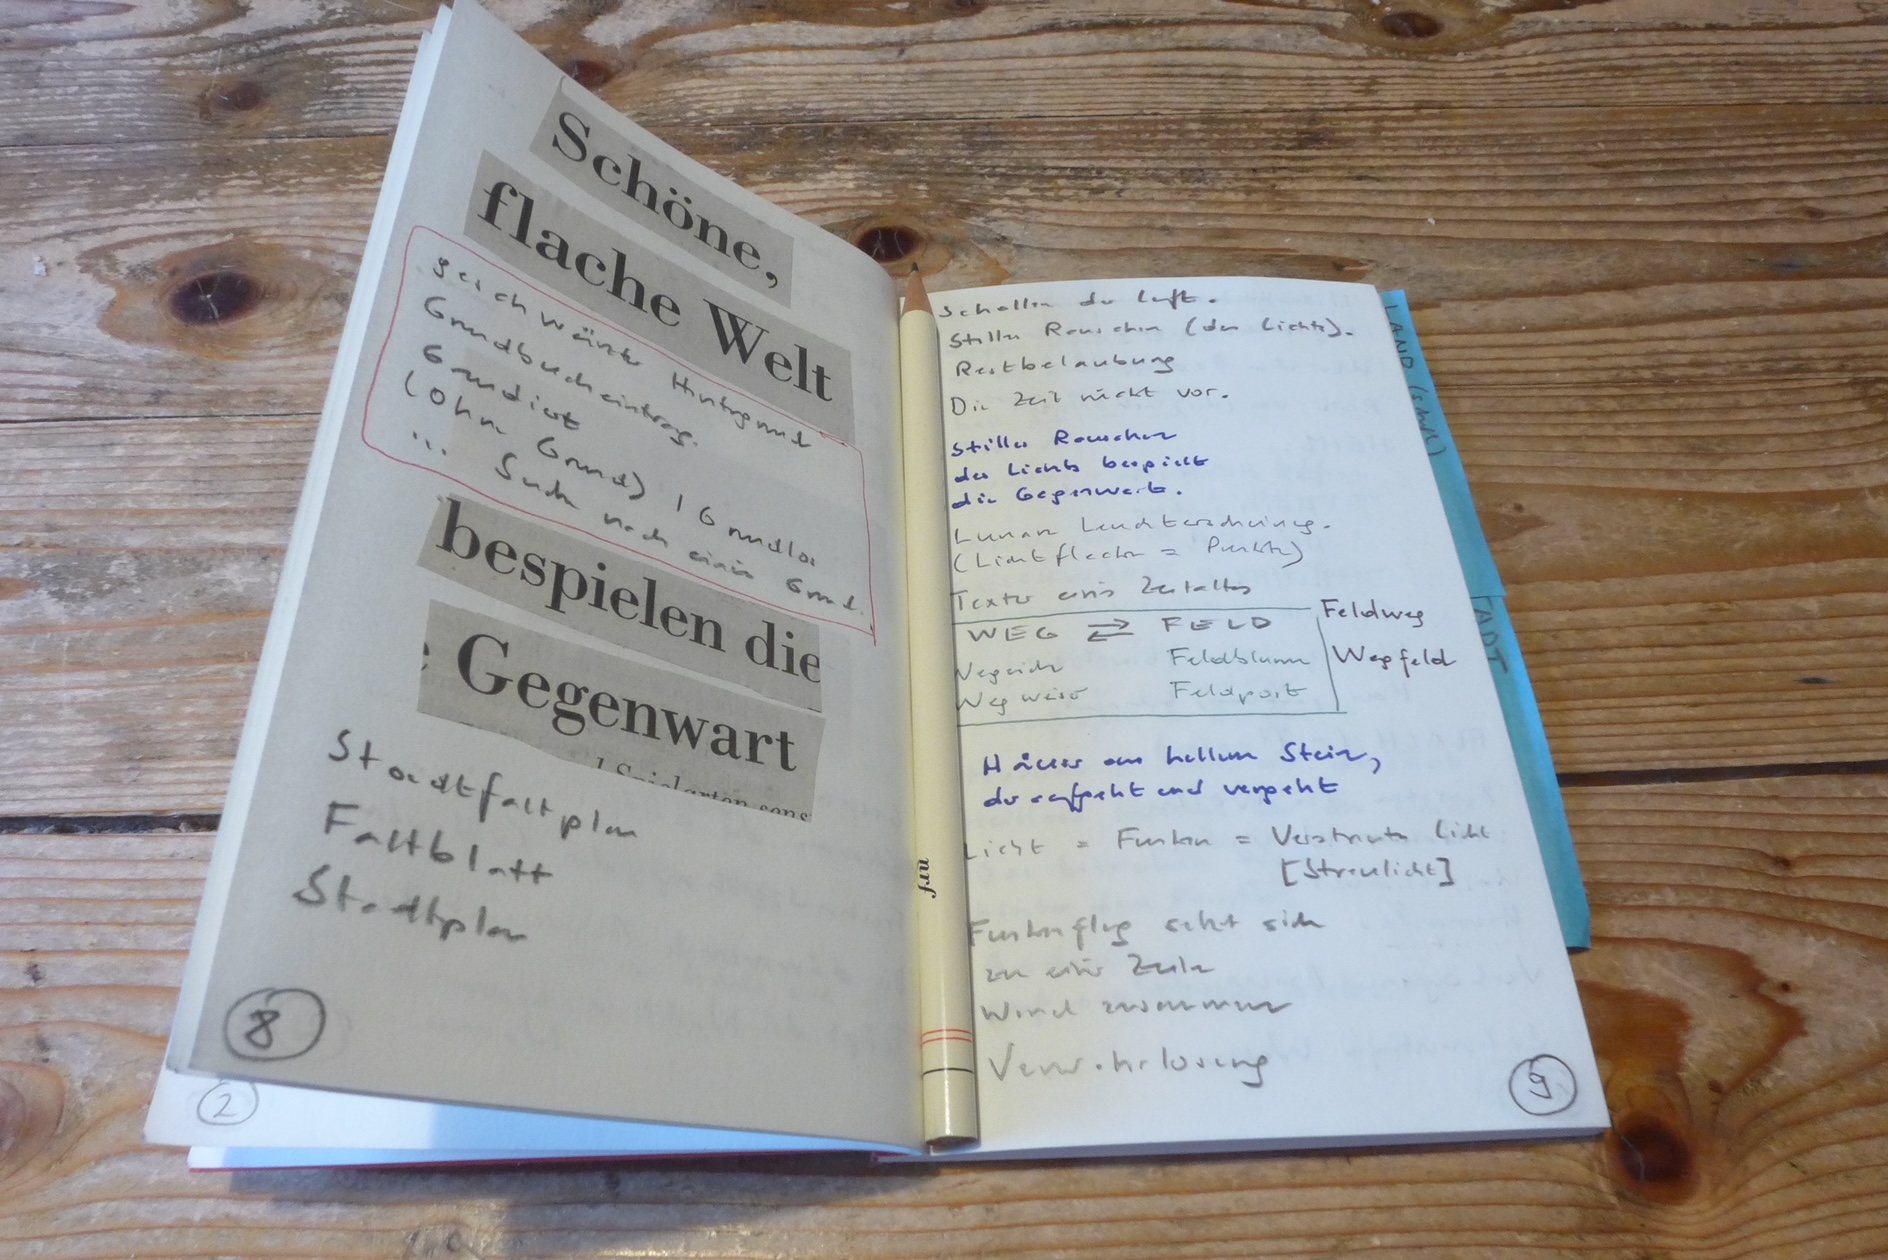 Schöne,
flache Welt
geschwärzter Hintergrund
Grundbucheintrag.
Grundiert
(Ohne Grund) / Grundlos
... Suche nach einem Grund.
bespielen die
e Gegenwart
Stadtfaltplan
Faltblatt
Stadtplan
8
2
Schollen der Luft.
Stilles Rauschen (des Lichts).
Restbelaubung
Die Zeit rückt vor.
Stilles Rauschen
des Lichts bespielt
die Gegenwart.
Lunare Leuchterscheinung.
(Lichtflecken = Punkte)
Textur eines Zeitalters
WEG ⇄ FELD
Feldweg
Wegfeld
Wegeich Feldblume
Wegweiser Feldpost
Häuser aus hellem Stein,
der aufgeht und vergeht
Licht = Funken = Verstreutes Licht
[Streulicht]
Funkenflug setzt sich
zu einer Zeile
Wind zusammen
Verwahrlosung
9
nrf
LAND (schaft)
TADT